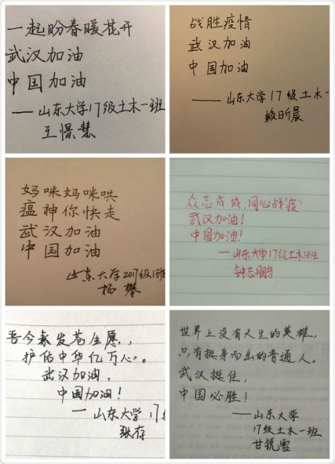 一起盼春暖花开
武汉加油
中国加油
——山东大学17级土木一班
王憬慧
战胜疫情
武汉加油
中国加油
——山东大学17级土木一班
妈咪妈咪哄
瘟神你快走
武汉加油
中国加油
山东大学2017级1班
杨攀
众志成城,同心战"疫"
武汉加油!
中国加油!
——山东大学17级土木1班
吾今来发苍生愿,
护佑中华亿万人。
武汉加油,
中国加油!
——山东大学17级
耿存
世界上没有天生的英雄,
只有挺身而出的普通人。
武汉挺住,
中国必胜!
——山东大学
17级土木一班
甘锐雪